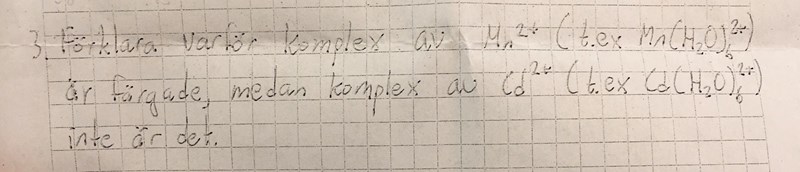 3. Förklara varför komplex av Mn²⁺ (t.ex Mn(H₂O)₆²⁺)
är färgade, medan komplex av Cd²⁺ (t.ex Cd(H₂O)₆²⁺)
inte är det.